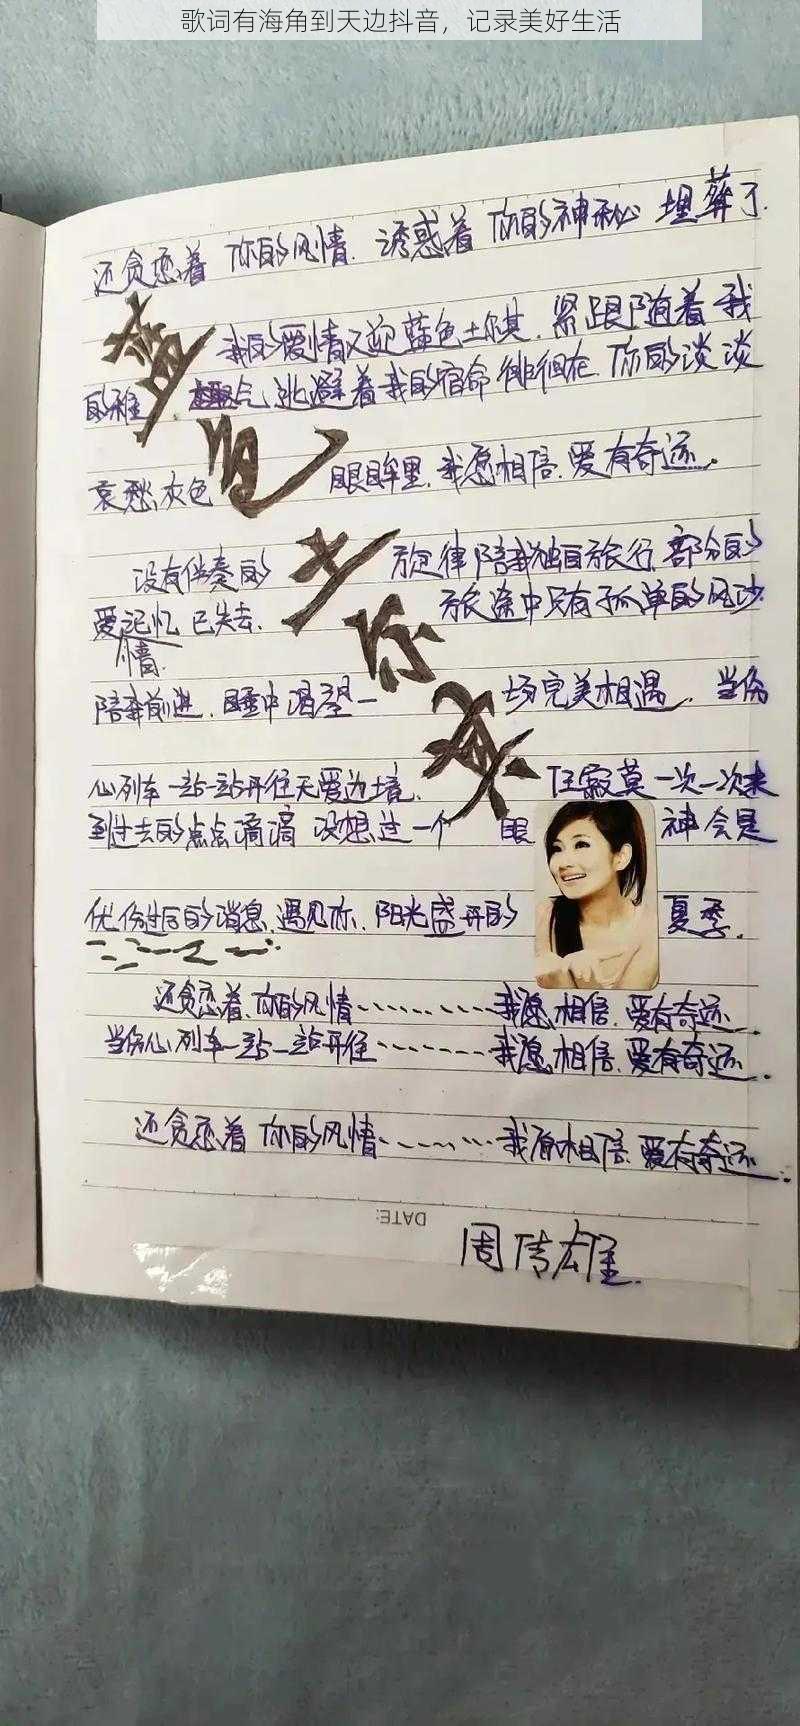 歌词有海角到天边抖音，记录美好生活
还贪恋着 你的风情. 诱惑着 你的神秘 埋葬了.
我的爱情又迎蓝色土耳其. 紧跟随着我
的稚 气 逃避着我的宿命 徘徊在 你的淡淡
哀愁灰色 眼眸里. 我愿相信. 爱有奇迹.
蓝色土尔其
没有伴奏的 旋律陪我独自旅行. 部分的
爱记忆 已失去. 旅途中只有孤单的风沙
情.
陪我前进. 睡中渴望一 场完美相遇. 当伤
心列车一站一站开往无爱边境. 任寂寞一次一次来
到过去的点点滴滴 没想过一个 眼 神会是
忧伤过后的消息. 遇见你. 阳光盛开的 夏季.
还贪恋着. 你的风情…………我愿相信. 爱有奇迹.
当伤心列车一站一站开往…………我愿相信. 爱有奇迹.
还贪恋着 你的风情…………我愿相信. 爱有奇迹.
DATE:
周传雄.